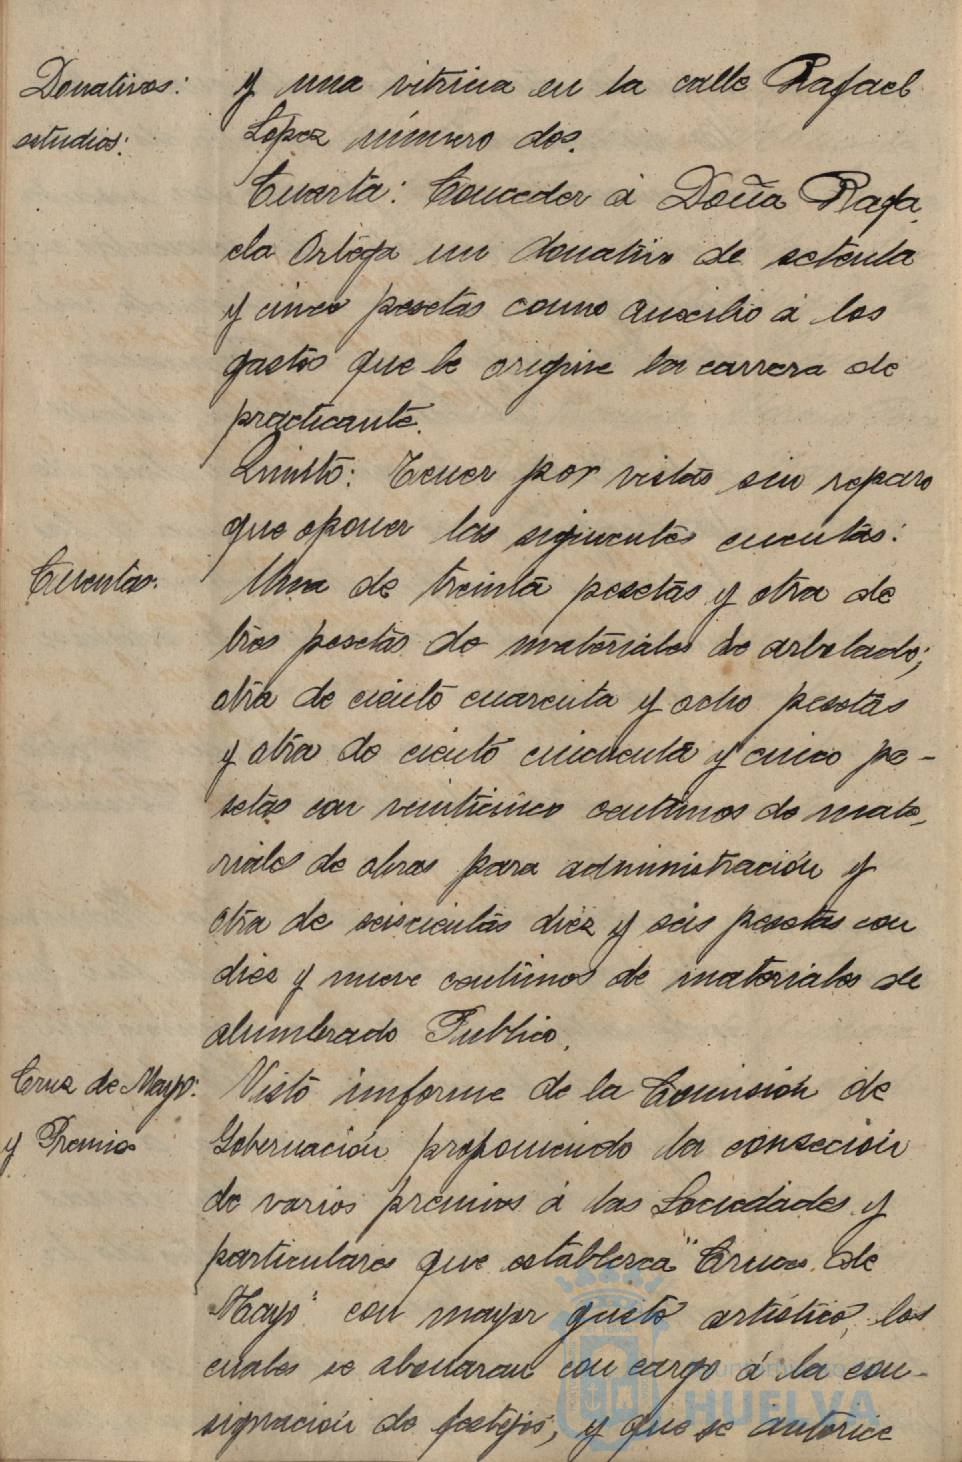 Donativos:
estudios:
y una vitrina en la calle Rafael
López número dos.
Cuarta: Conceder á Doña Rafa
ela Ortega un donativo de setenta
y cinco pesetas como auxilio á los
gastos que le origine la carrera de
practicante.
Quinto: Tener por vistas sin reparo
que oponer las siguientes cuentas:
Cuentas.
Una de treinta pesetas y otra de
tres pesetas de materiales de arbolado;
otra de ciento cuarenta y ocho pesetas
y otra de ciento cincuenta y cinco pe-
setas con veinticinco centimos de mate
riales de obras para administración y
otra de seiscientas diez y seis pesetas con
diez y nueve centimos de materiales de
alumbrado Publico.
Cruz de Mayo:
y Premios
Visto informe de la Comisión de
Gobernación proponiendo la conseción
de varios premios á las Sociedades y
particulares que establezca "Cruces de
Mayo" con mayor gusto artístico, los
cuales se abonaran con cargo á la con-
signación de festejos, y que se autorice
HUELVA